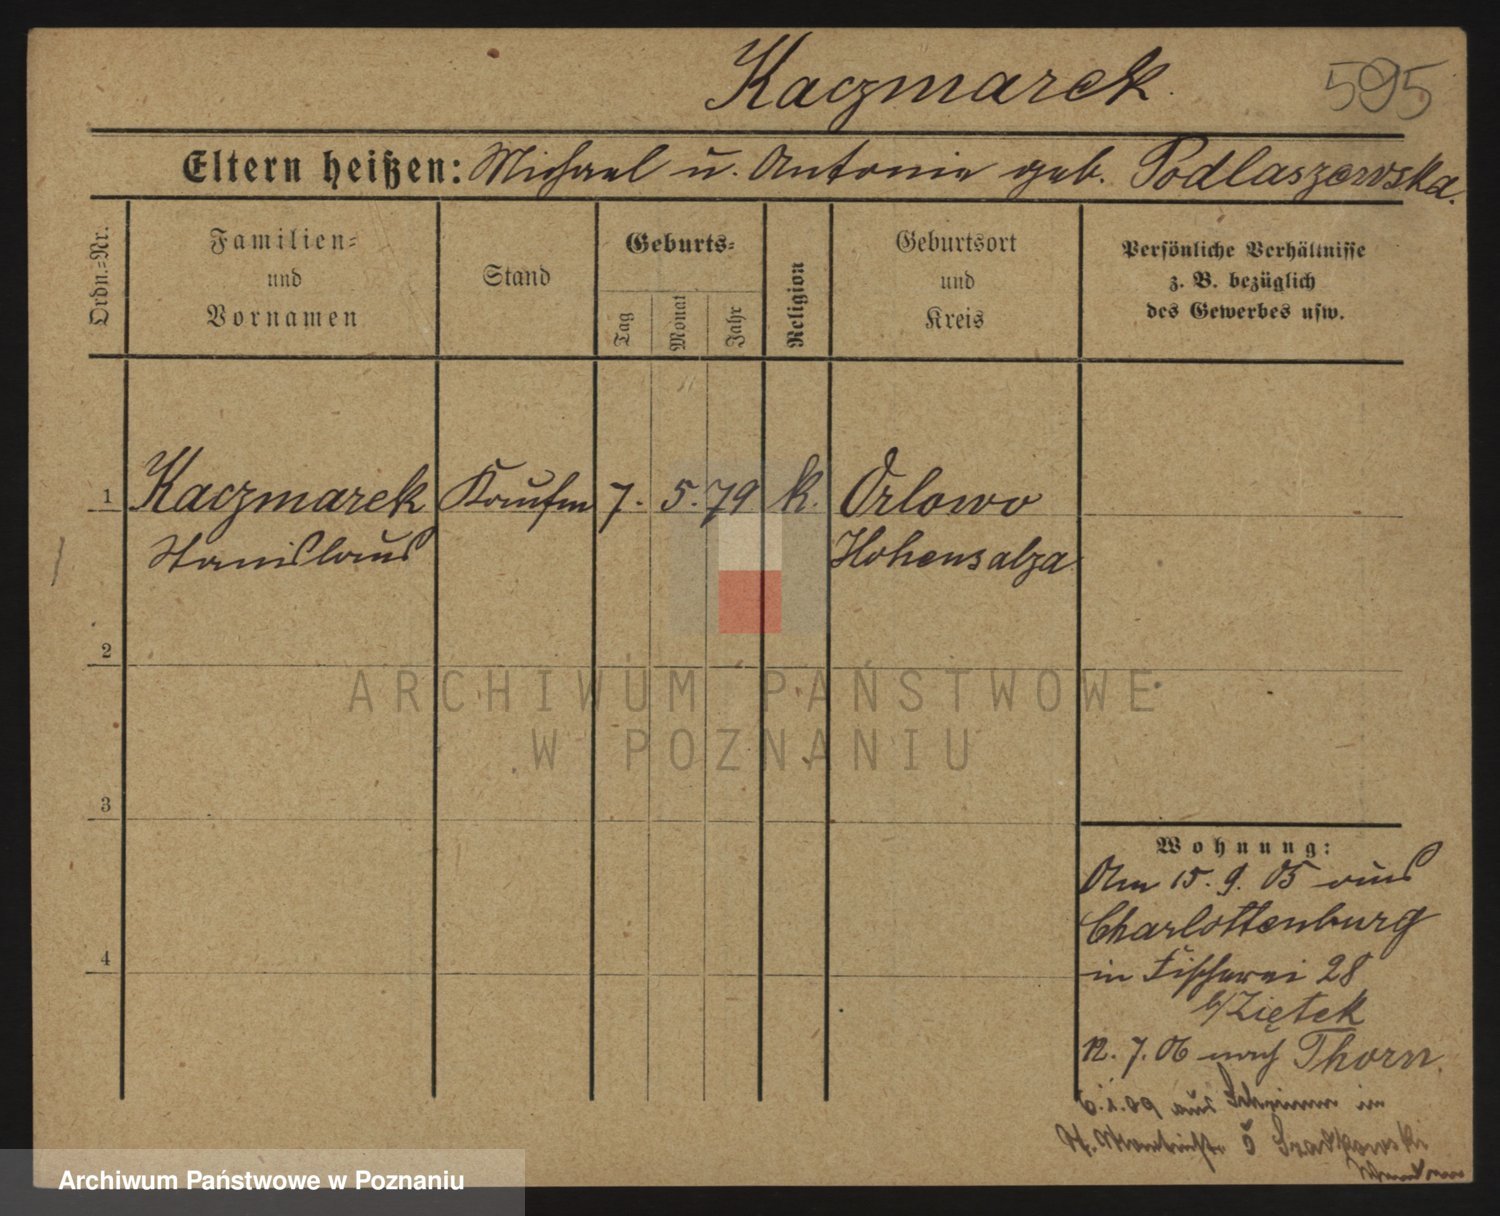 Kaczmarek
595
Eltern heißen: Michael u. Antonie geb. Podlaszewska.
Ordn.=Nr.
Familien=
und
Vornamen
Stand
Geburts=
Tag
Monat
Jahr
Religion
Geburtsort
und
Kreis
Persönliche Verhältnisse
z. B. bezüglich
des Gewerbes usw.
1 Kaczmarek Kaufm 7. 5. 79 k. Orlowo
Stanislaus Hohensalza
2
3
4
Wohnung:
Am 15. 9. 05 aus
Charlottenburg
in Fischerei 28
b/Ziętek
12. 7. 06 nach Thorn.
aus in
ARCHIWUM PAŃSTWOWE
W POZNANIU
Archiwum Państwowe w Poznaniu